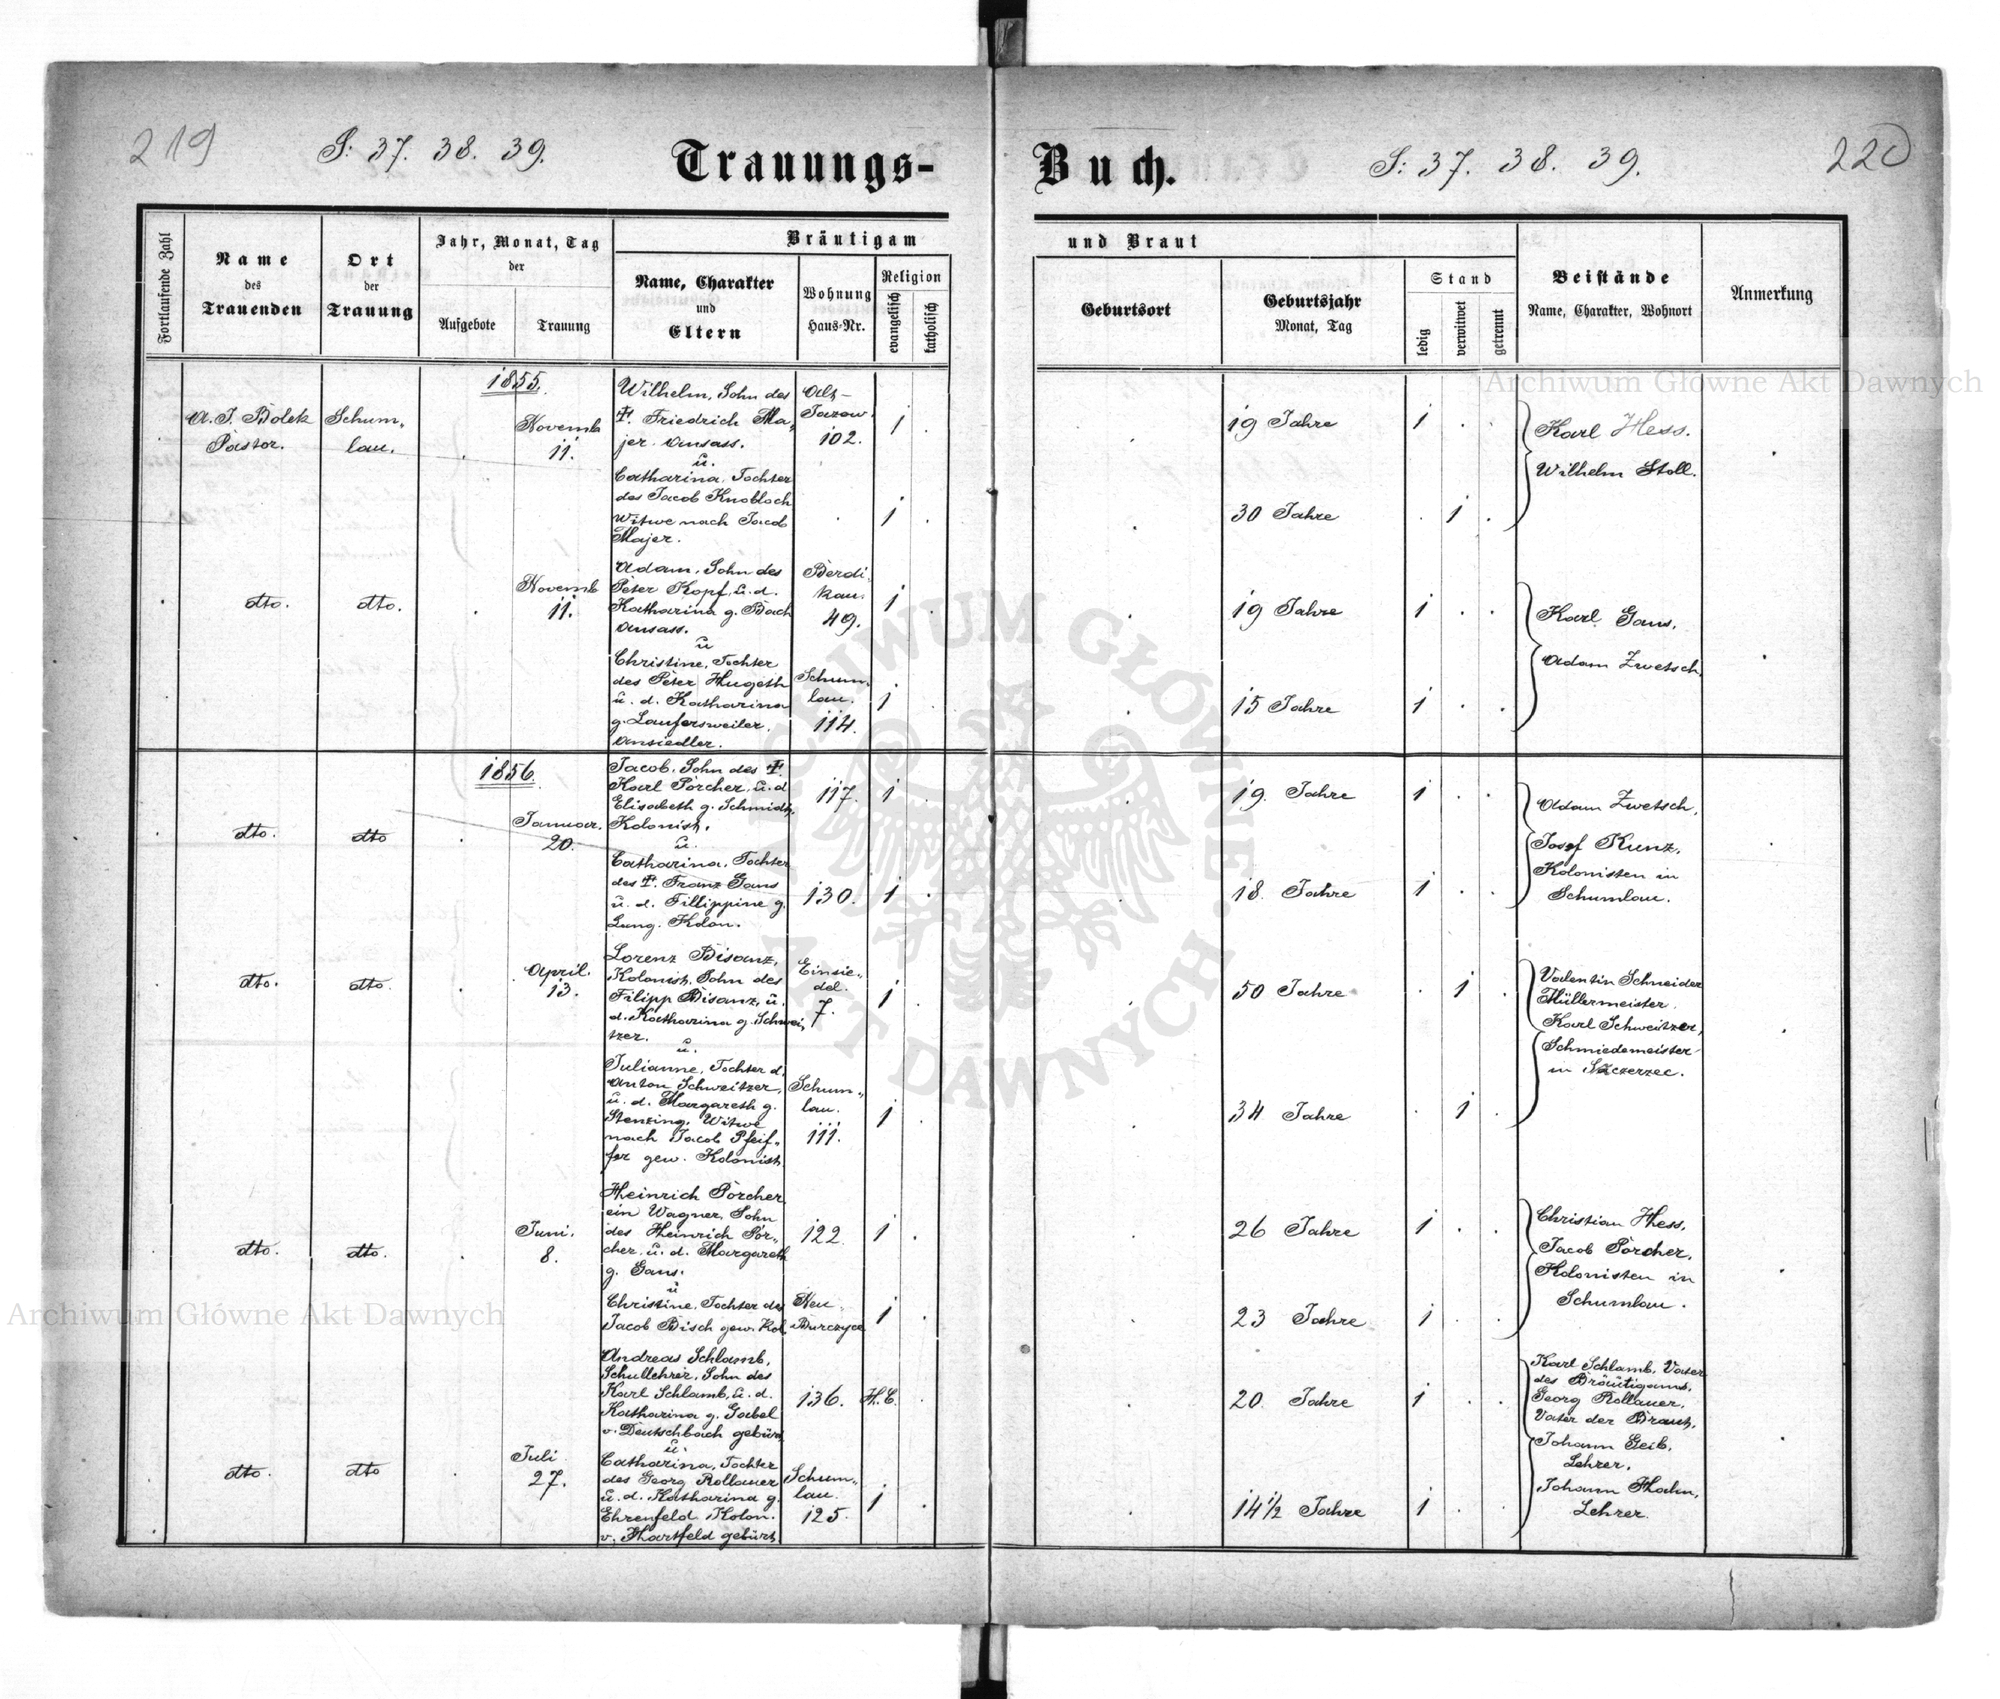 219
S: 37. 38. 39.
Trauungs-
Buch.
S: 37. 38. 39.
220
Fortlaufende Zahl
Name
des
Trauenden
Ort
der
Trauung
Jahr, Monat, Tag
der
Aufgebote
Trauung
Bräutigam
Name, Charakter
und
Eltern
Wohnung
Haus-Nr.
Religion
evangelisch
katholisch
und Braut
Geburtsort
Geburtsjahr
Monat, Tag
Stand
ledig
verwitwet
getrennt
Beistände
Name, Charakter, Wohnort
Anmerkung
1855.
A. J. Bolek
Pastor.
Schum„
lau.
Novemb
11.
Wilhelm, Sohn des
†. Friedrich Ma„
jer. Ansass.
u.
Catharina, Tochter
des Jacob Knobloch
Witwe nach Jacob
Majer.
Alt-
Jazow.
102.
1
1
19 Jahre
1
30 Jahre
1
Karl Hess.
Wilhelm Stoll.
dto.
dto.
Novemb
11.
Adam, Sohn des
Peter Kopf, u. d.
Katharina g. Bach
Ansass.
u
Christine, Tochter
des Peter Hugeth
u. d. Katharina
g. Laufersweiler.
Ansiedler.
Berdi„
kau.
49.
Schum„
lau.
114.
1
1
19 Jahre
1
15 Jahre
1
Karl Gans.
Adam Zwetsch.
1856.
dto.
dto
Januar.
20.
Jacob, Sohn des †.
Karl Porcher, u. d
Elisabeth g. Schmidt,
Kolonist.
u.
Catharina, Tochter
des †. Franz Gans
u. d. Fillippine g.
Lang. Kolon.
117.
130.
1
1
19. Jahre
1
18. Jahre
1
Adam Zwetsch,
Josef Kunz,
Kolonisten in
Schumlau.
dto.
dto.
April.
13.
Lorenz Bisanz,
Kolonist, Sohn des
Filipp Bisanz, u.
d. Katharina g. Schwei„
tzer.
u.
Julianne, Tochter d.
Anton Schweitzer,
u. d. Margareth g.
Stenzing, Witwe
nach Jacob Pfeif„
fer gew. Kolonist
Einsie„
del.
7.
Schum„
lau.
111.
1
1
50 Jahre
1
34 Jahre
1
Valentin Schneider
Müllermeister.
Karl Schweitzer,
Schmiedemeister
in Szczerzec.
dto.
dto.
Juni.
8.
Heinrich Porcher
ein Wagner, Sohn
des Heinrich Por„
cher, u. d. Margareth
g. Gans.
u
Christine, Tochter des
Jacob Bisch gew. Kol.
122.
Neu„
Burczyce
1
1
26 Jahre
1
23 Jahre
1
Christian Hess.
Jacob Porcher,
Kolonisten in
Schumlau.
dto.
dto
Juli
27.
Andreas Schlamb,
Schullehrer, Sohn des
Karl Schlamb, u. d.
Katharina g. Gabel
v. Deutschbach gebürt,
u.
Catharina, Tochter
des Georg Rollauer
u. d. Katharina g.
Ehrenfeld Kolon.
v. Hartfeld gebürt.
136.
Schum„
lau.
125.
H. C.
1
20. Jahre
1
14 1/2 Jahre
1
Karl Schlamb, Vater
des Bräutigams,
Georg Rollauer,
Vater der Braut,
Johann Geib,
Lehrer,
Johann Hahn,
Lehrer.
Archiwum Główne Akt Dawnych
Archiwum Główne Akt Dawnych
ARCHIWUM GŁÓWNE AKT DAWNYCH